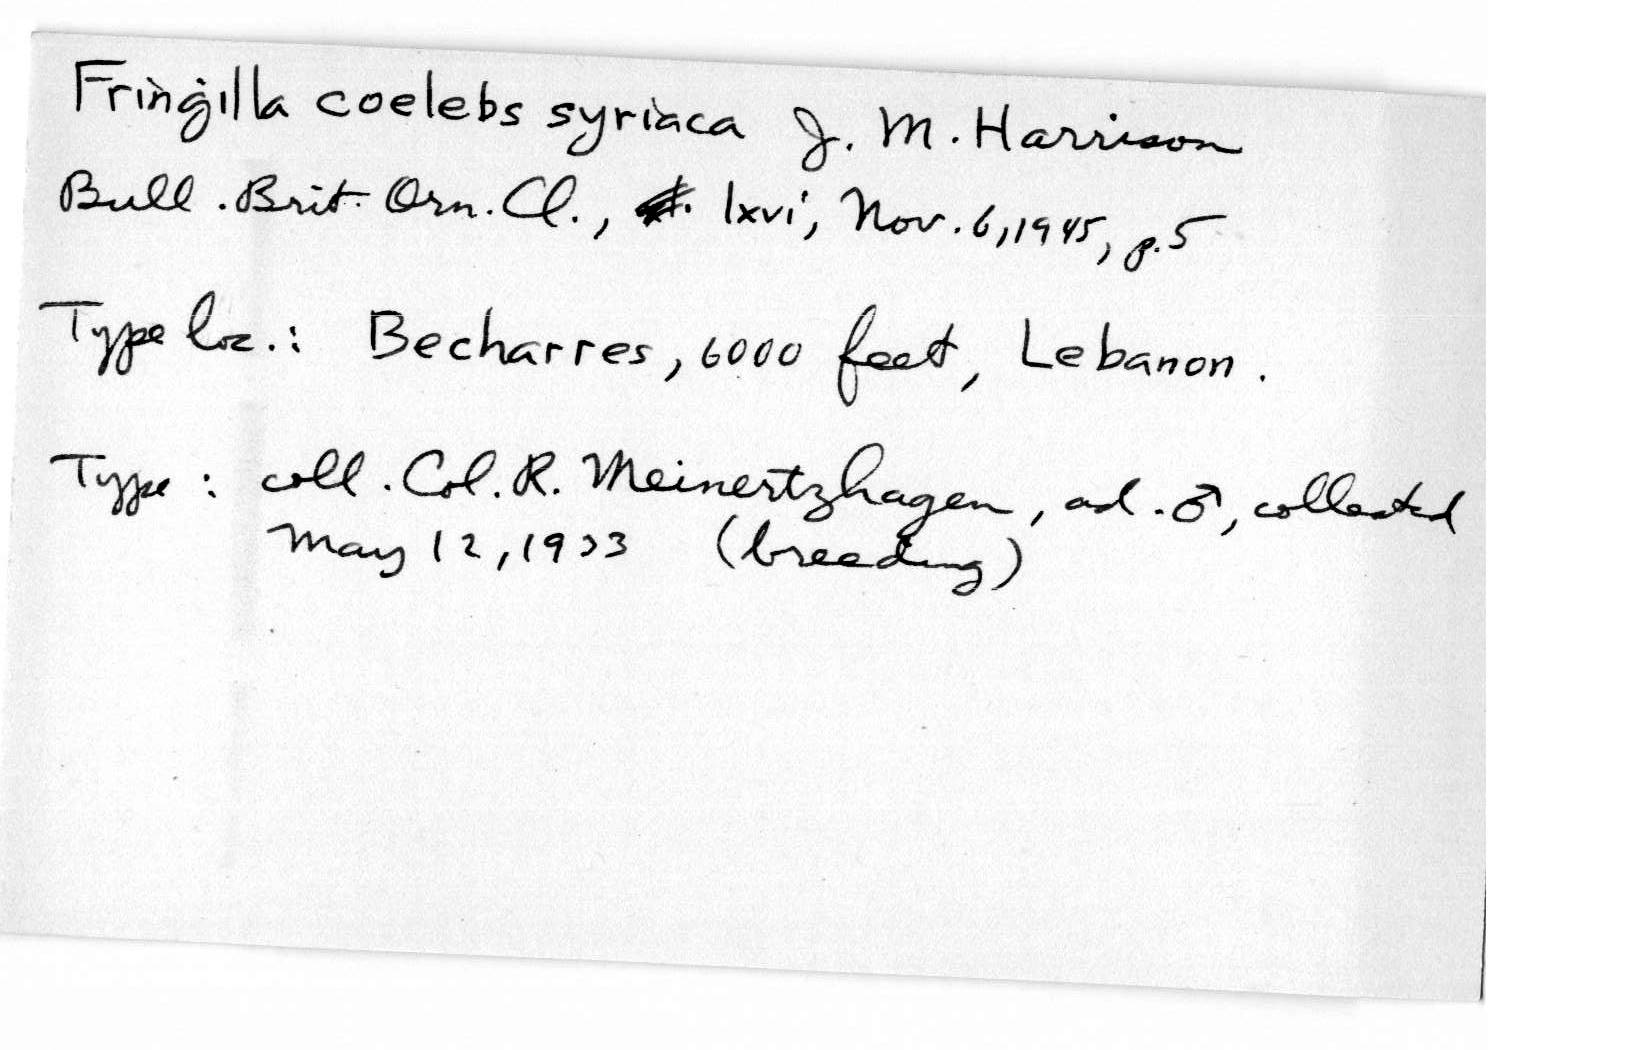 Fringilla coelebs syriaca J. M. Harrison
Bull. Brit. Orn. Cl., lxvi, Nov. 6, 1945, p. 5
Type loc.: Becharres, 6000 feet, Lebanon.
Type: coll. Col. R. Meinertzhagen, ad. ♂, collected
May 12, 1933 (breeding)